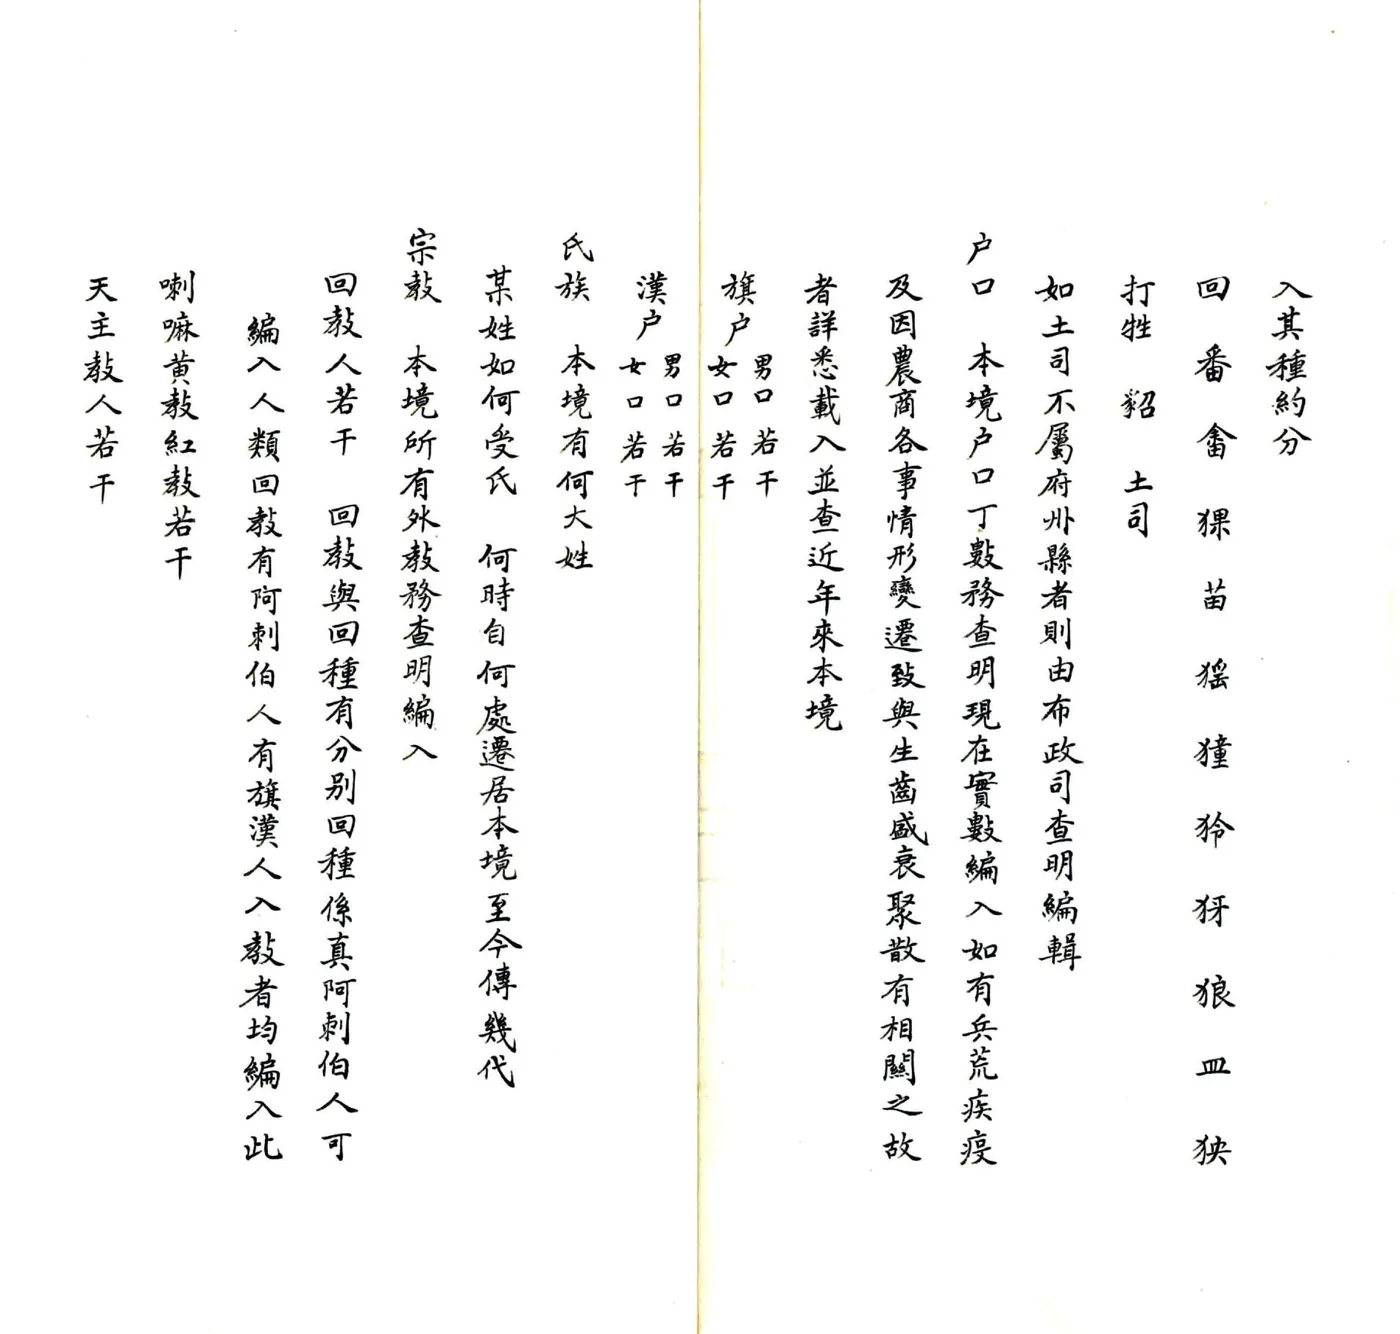 入其種約分
回 番 畬 猓 苗 猺 獞 狑 犽 狼 皿 狹
打牲 貂 土司
如土司不屬府州縣者則由布政司查明編輯
户口 本境户口丁數務查明現在實數編入如有兵荒疾疫
及因農商各事情形變遷致與生齒盛衰聚散有相關之故
者詳悉載入並查近年來本境
旗户 男口若干
女口若干
漢户 男口若干
女口若干
氏族 本境有何大姓
某姓如何受氏 何時自何處遷居本境至今傳幾代
宗教 本境所有外教務查明編入
回教人若干 回教與回種有分别回種係真阿剌伯人可
編入人類回教有阿剌伯人有旗漢人入教者均編入此
喇嘛黄教紅教若干
天主教人若干